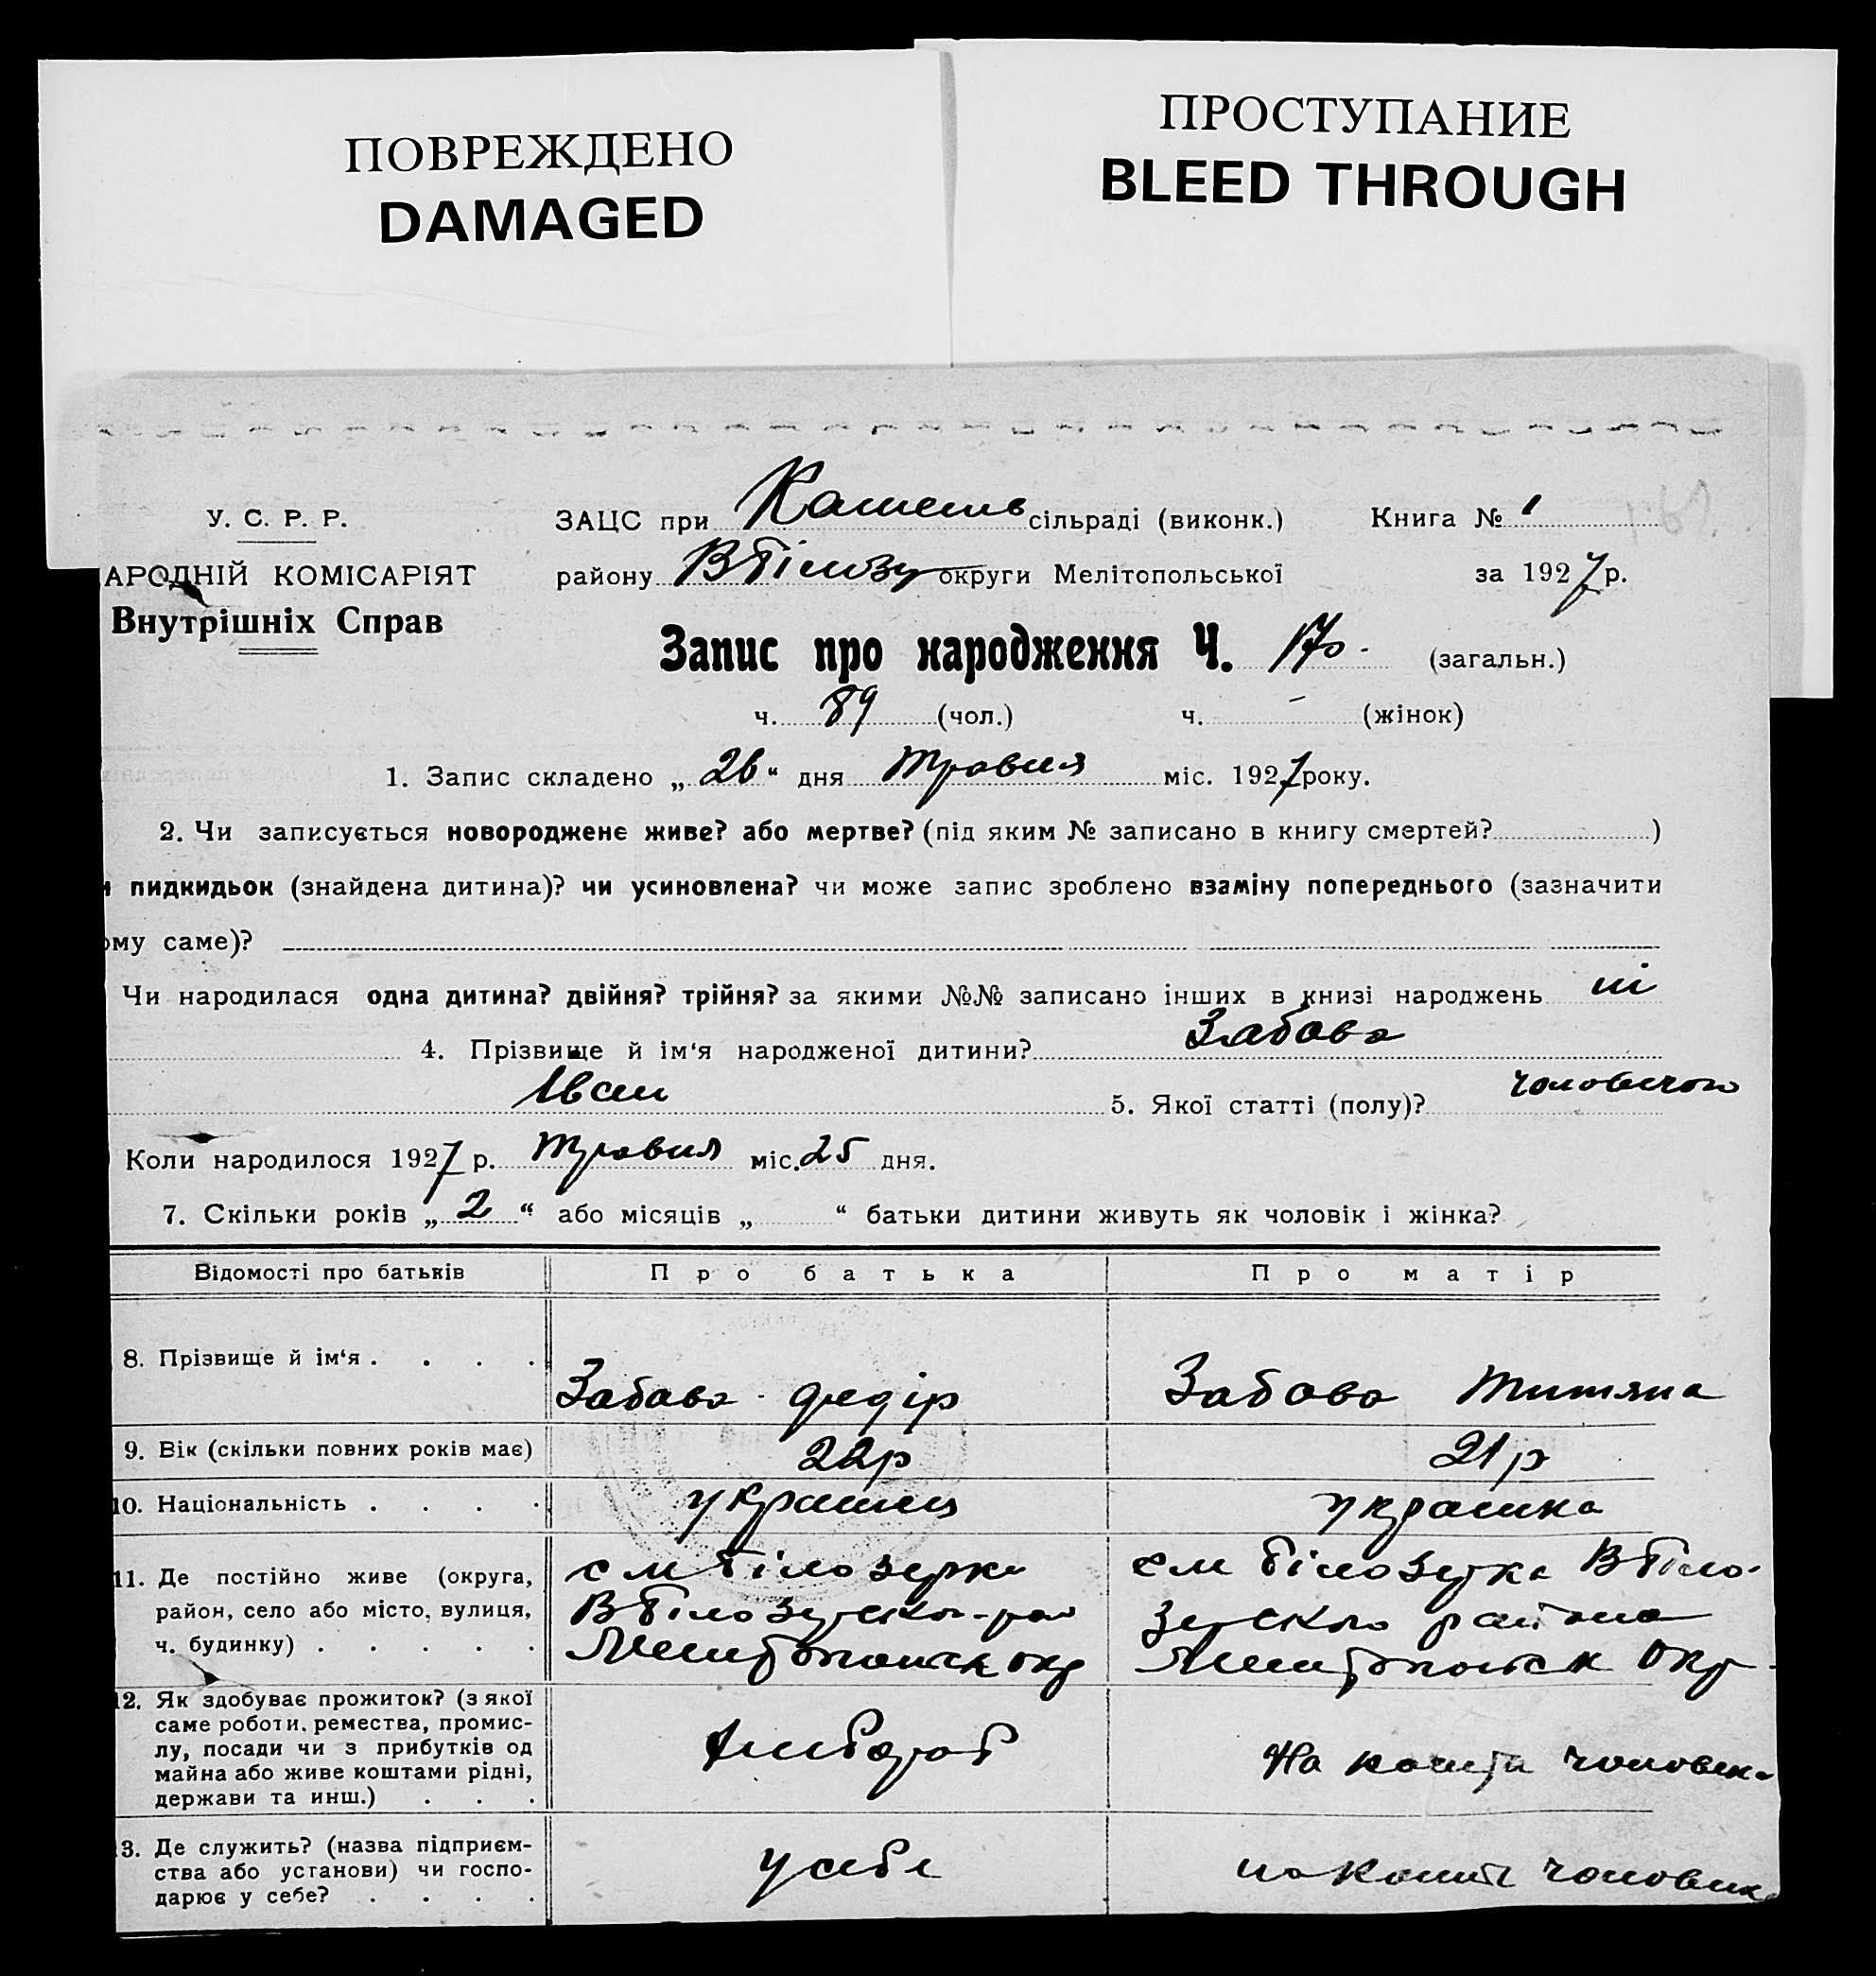 ПОВРЕЖДЕНО
DAMAGED
ПРОСТУПАНИЕ
BLEED THROUGH
У. С. Р. Р.
АРОДНІЙ КОМІСАРІЯТ
Внутрішніх Справ
ЗАЦС при сільраді (виконк.) Книга № 1
району В Білозу округи Мелітопольської за 1927 р.
Запис про народження Ч. 170 (загальн.)
ч. 89 (чол.) ч. - (жінок)
1. Запис складено „ 26 “ дня Травня міс. 1927 року.
2. Чи записується новороджене живе? або мертве? (під яким № записано в книгу смертей? )
и пидкидьок (знайдена дитина)? чи усиновлена? чи може запис зроблено взаміну попереднього (зазначити
ому саме)?
Чи народилася одна дитина? двійня? трійня? за якими №№ записано інших в книзі народжень ні
4. Прізвище й ім‘я народженої дитини? Забава
Іван 5. Якої статті (полу)? чоловічого
Коли народилося 1927 р. Травня міс. 25 дня.
7. Скільки років „ 2 “ або місяців „ “ батьки дитини живуть як чоловік і жінка?
Відомості про батьків Про батька Про матір
8. Прізвище й ім‘я . . . . Забава Федір Забава Титяна
9. Вік (скільки повних років має) 22 р 21 р
10. Національність . . . . українец українка
11. Де постійно живе (округа,
район, село або місто, вулиця,
ч. будинку) . . . . .
с М Білозерка
В Білозерськ рай
Мелітопольск окр
с М Білозерка В Біло-
зерского району
Мелітопольск Окр
12. Як здобуває прожиток? (з якої
саме роботи, ремества, промис-
лу, посади чи з прибутків од
майна або живе коштами рідні,
держави та инш.) . . .
Хлібороб
На кошти чоловіка
13. Де служить? (назва підприєм-
ства або установи) чи госпо-
дарює у себе? . . . .
у себе
на кошти чоловіка